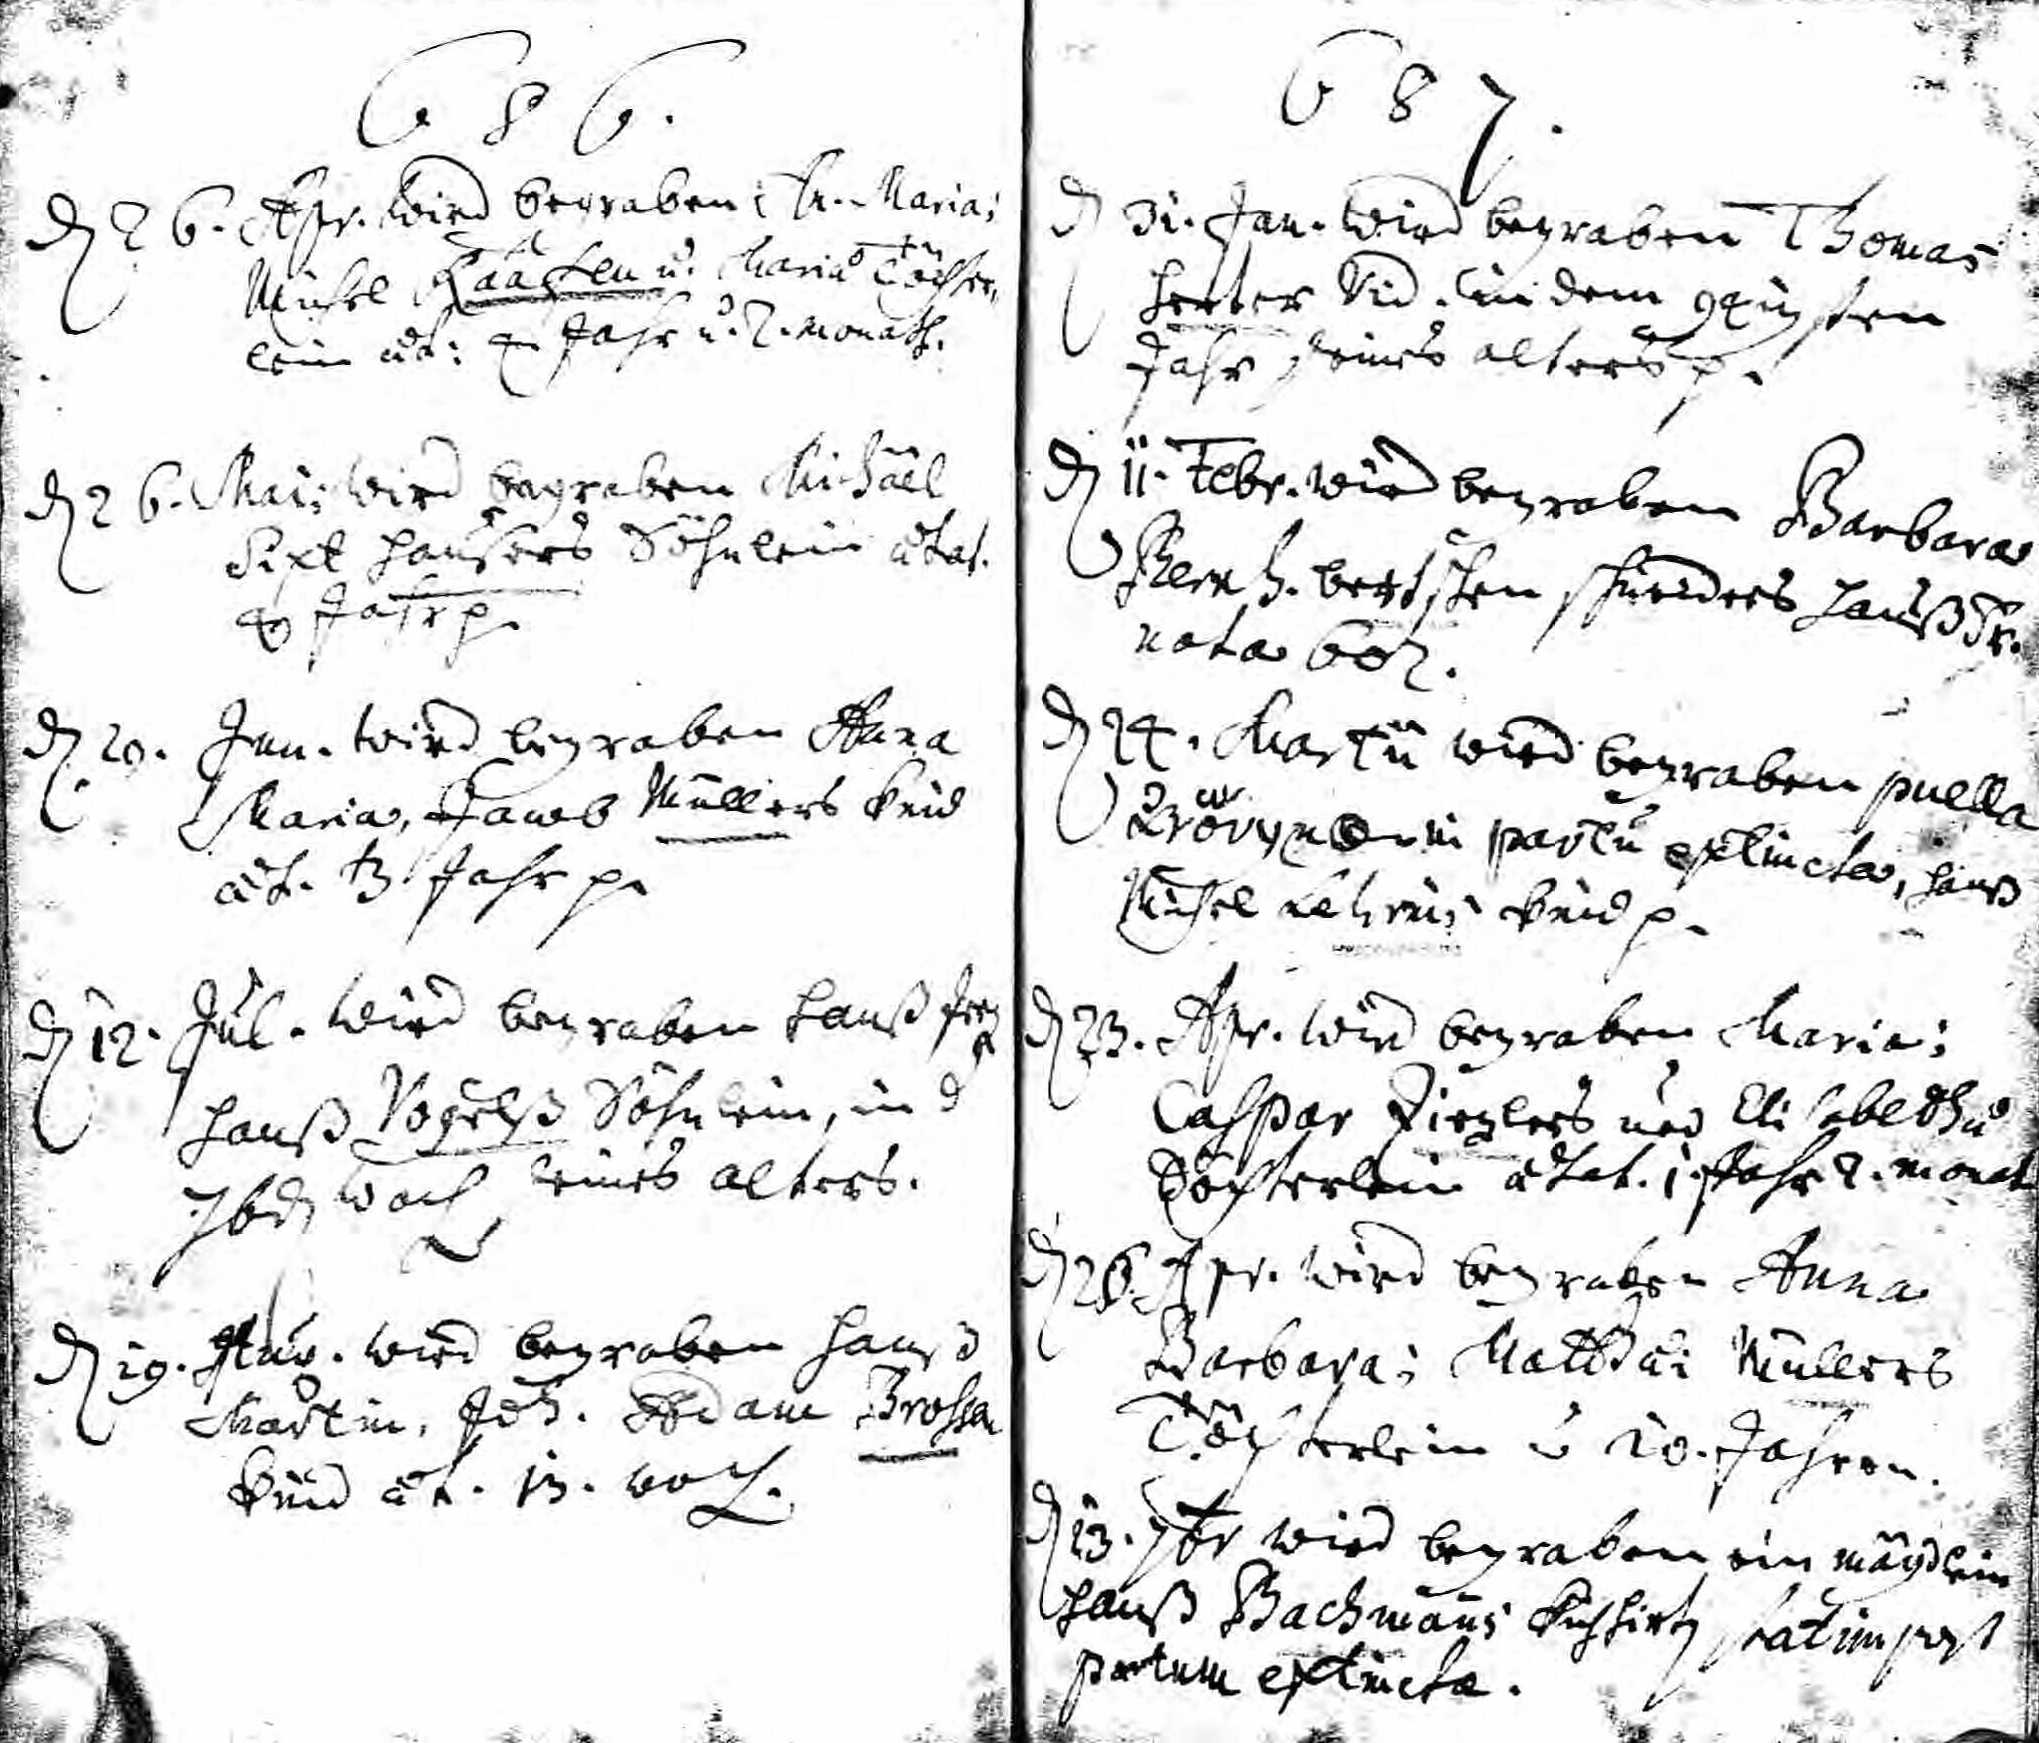 686.
d 26. Apr. wird begraben: A. Maria;
Michel u. Mariae Töchter,
lein aet: 4 Jahr u. 2. monath.
d 26. Maij wird begraben Michäel
Sixt Haußers Söhnlein aetat.
Jahr p.
d 20. Jun. wird begraben Anna
Maria, Jacob Müllers kind
aet. 3 Jahr p.
d 12. Jul. wird begraben Hanß Jerg
Hanß Vogelß Söhnlein, in d
woch seines alters.
d 19. wird begraben Hanß
Martin, Joh. Adam Brossen
kind aet. 13. woch.
687.
d 31. Jan. wird begraben Thomas
Herter Vid. in dem sten
Jahr seines alters p.
d 11. Febr. wird begraben Barbara
Bernh. bertschen schneiders haußfr.
nata 602.
d 24. Martii wird begraben puella
in partu extincta, Hanß
Michel kind p.
d 23. Apr. wird begraben Maria;
Caspar Zieglers und Elisabethae
Töchterlein aetat. 1. Jahr 2. monat
d 26. Apr. wird begraben Anna
Barbara; Matthaei Müllers
Töchterlein v 10. Jahren.
d 13. 7br wird begraben ein mägdlein
Hanß Bachmanns Kuhhirts statim post
partum extincta.